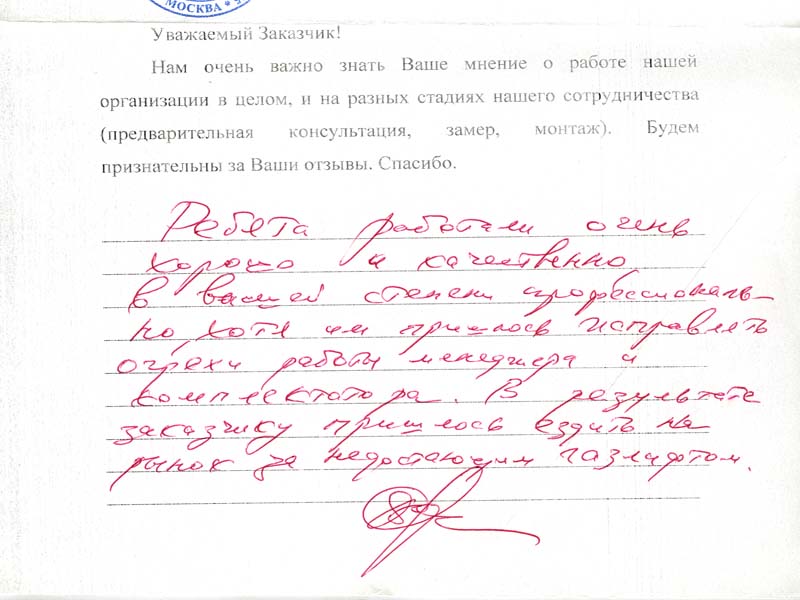 МОСКВА *
Уважаемый Заказчик!
Нам очень важно знать Ваше мнение о работе нашей
организации в целом, и на разных стадиях нашего сотрудничества
(предварительная консультация, замер, монтаж). Будем
признательны за Ваши отзывы. Спасибо.
Ребята работали очень
хорошо и качественно
в вашей степени профессиональ-
но, хотя им пришлось исправлять
огрехи работы менеджера и
комплектатора. В результате
заказчику пришлось ездить на
рынок за недостающим газлифтом.